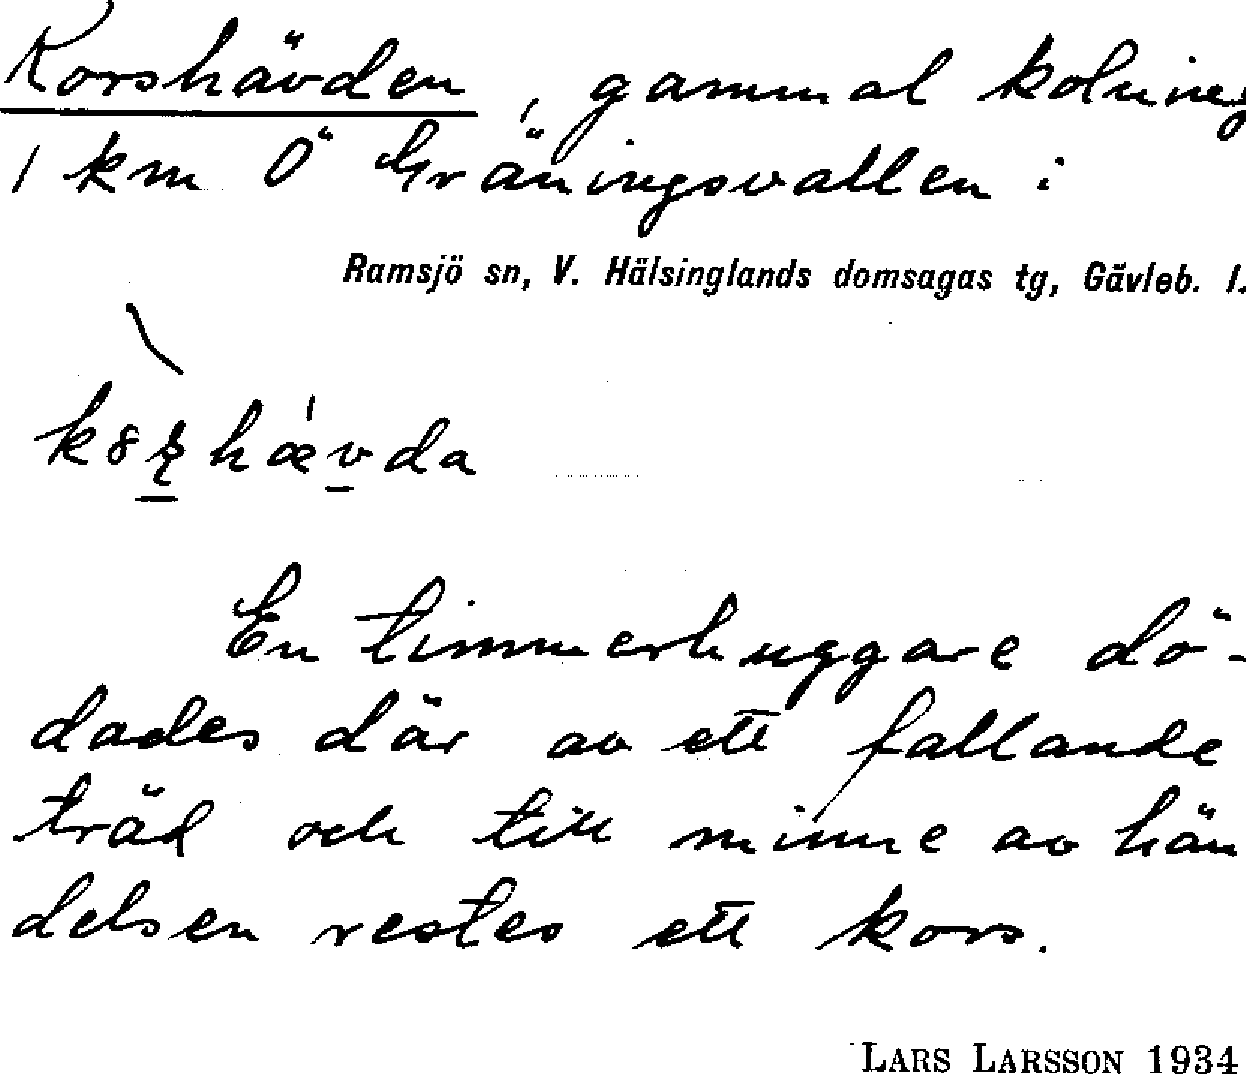 Korshävden, gammal kolning
1 km Ö Gräningsvallen i
Ramsjö sn, V. Hälsinglands domsagas tg, Gävleb. l.
En timmerhuggare dö-
dades där av ett fallande
träd och till minne av hän
delsen restes ett kors.
LARS LARSSON 1934